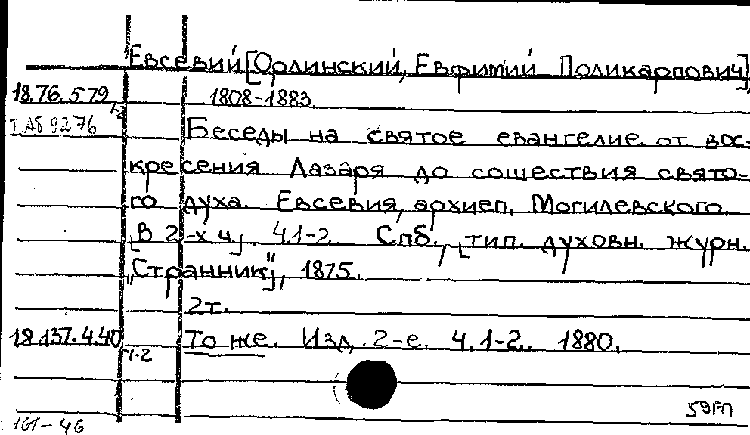 Евсевий [Орлинский, Евфимий Поликарпович],
18.76.579 1808-1883
1-2
Беседы на святое евангелие от вос-
кресения Лазаря до сошествия свято-
го духа. Евсевия, архиеп. Могилевского.
[В 2-х ч.]. Ч.1-2. Спб., [тип. духовн. журн.
"Странник"], 1875.
2т.
18.137.4.40 То же. Изд. 2-е. Ч.1-2. 1880.
1-2
59ГП
161-46